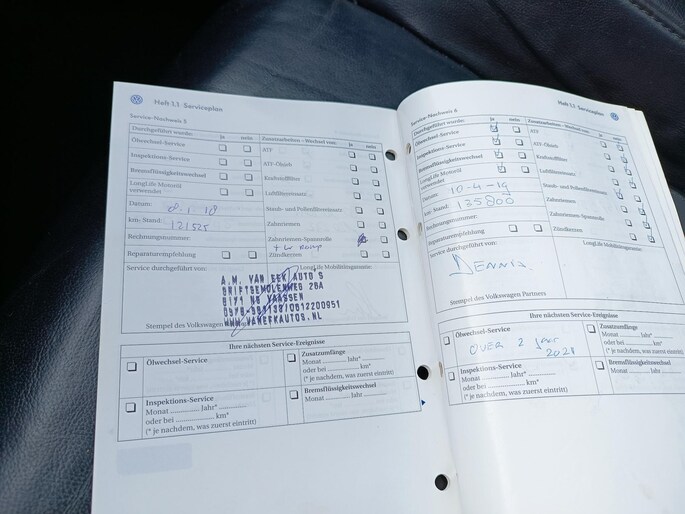 Heft 1.1 Serviceplan
Service-Nachweis 5
Durchgeführt wurde: ja nein Zusatzarbeiten - Wechsel von: ja nein
Ölwechsel-Service ATF
Inspektions-Service ATF-Ölsieb
Bremsflüssigkeitswechsel Kraftstofffilter
LongLife Motoröl verwendet Luftfiltereinsatz
Datum: 8-1-18 Staub- und Pollenfiltereinsatz
km-Stand: 121525 Zahnriemen
Rechnungsnummer: Zahnriemen-Spannrolle
+ W Pomp
Reparaturempfehlung Zündkerzen
Service durchgeführt von: LongLife Mobilitätsgarantie
A.M. VAN EEK AUTO'S
DRIFTSEMOLENWEG 26A
8171 NS VAASSEN
WWW.VANEEKAUTOS.NL
Stempel des Volkswagen
Ihre nächsten Service-Ereignisse
Ölwechsel-Service Zusatzumfänge
Monat Jahr*
oder bei km*
(* je nachdem, was zuerst eintritt)
Inspektions-Service Bremsflüssigkeitswechsel
Monat Jahr* Monat Jahr
oder bei km*
(* je nachdem, was zuerst eintritt)
Heft 1.1 Serviceplan
Service-Nachweis 6
Durchgeführt wurde: ja nein Zusatzarbeiten - Wechsel von: ja nein
Ölwechsel-Service ATF
Inspektions-Service ATF-Ölsieb
Bremsflüssigkeitswechsel Kraftstofffilter
LongLife Motoröl verwendet Luftfiltereinsatz
Datum: 10-4-19 Staub- und Pollenfiltereinsatz
km-Stand: 135800 Zahnriemen
Rechnungsnummer: Zahnriemen-Spannrolle
Reparaturempfehlung Zündkerzen
Service durchgeführt von: LongLife Mobilitätsgarantie
Dennis
Stempel des Volkswagen Partners
Ihre nächsten Service-Ereignisse
Ölwechsel-Service Zusatzumfänge
OVER 2 Jaar Monat Jahr*
2021 oder bei km*
(* je nachdem, was zuerst eintritt)
Inspektions-Service Bremsflüssigkeitswechsel
Monat Jahr* Monat Jahr
oder bei km*
(* je nachdem, was zuerst eintritt)